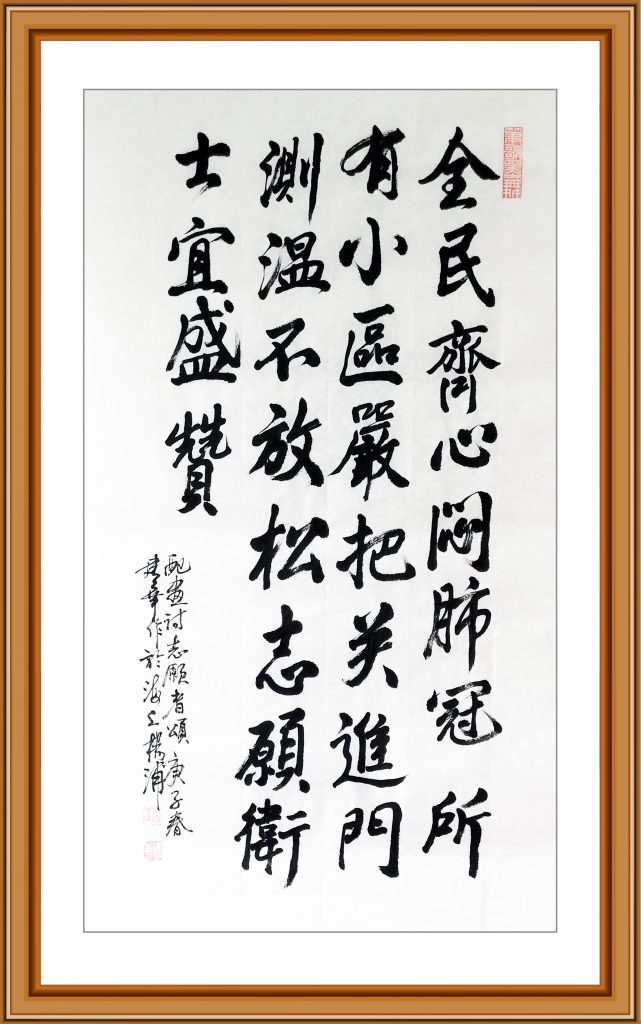 全民齊心悶肺冠所
有小區嚴把关進門
測溫不放松志願衛
士宜盛贊
配畫詩志願者頌庚子春
建華作於海上楊浦